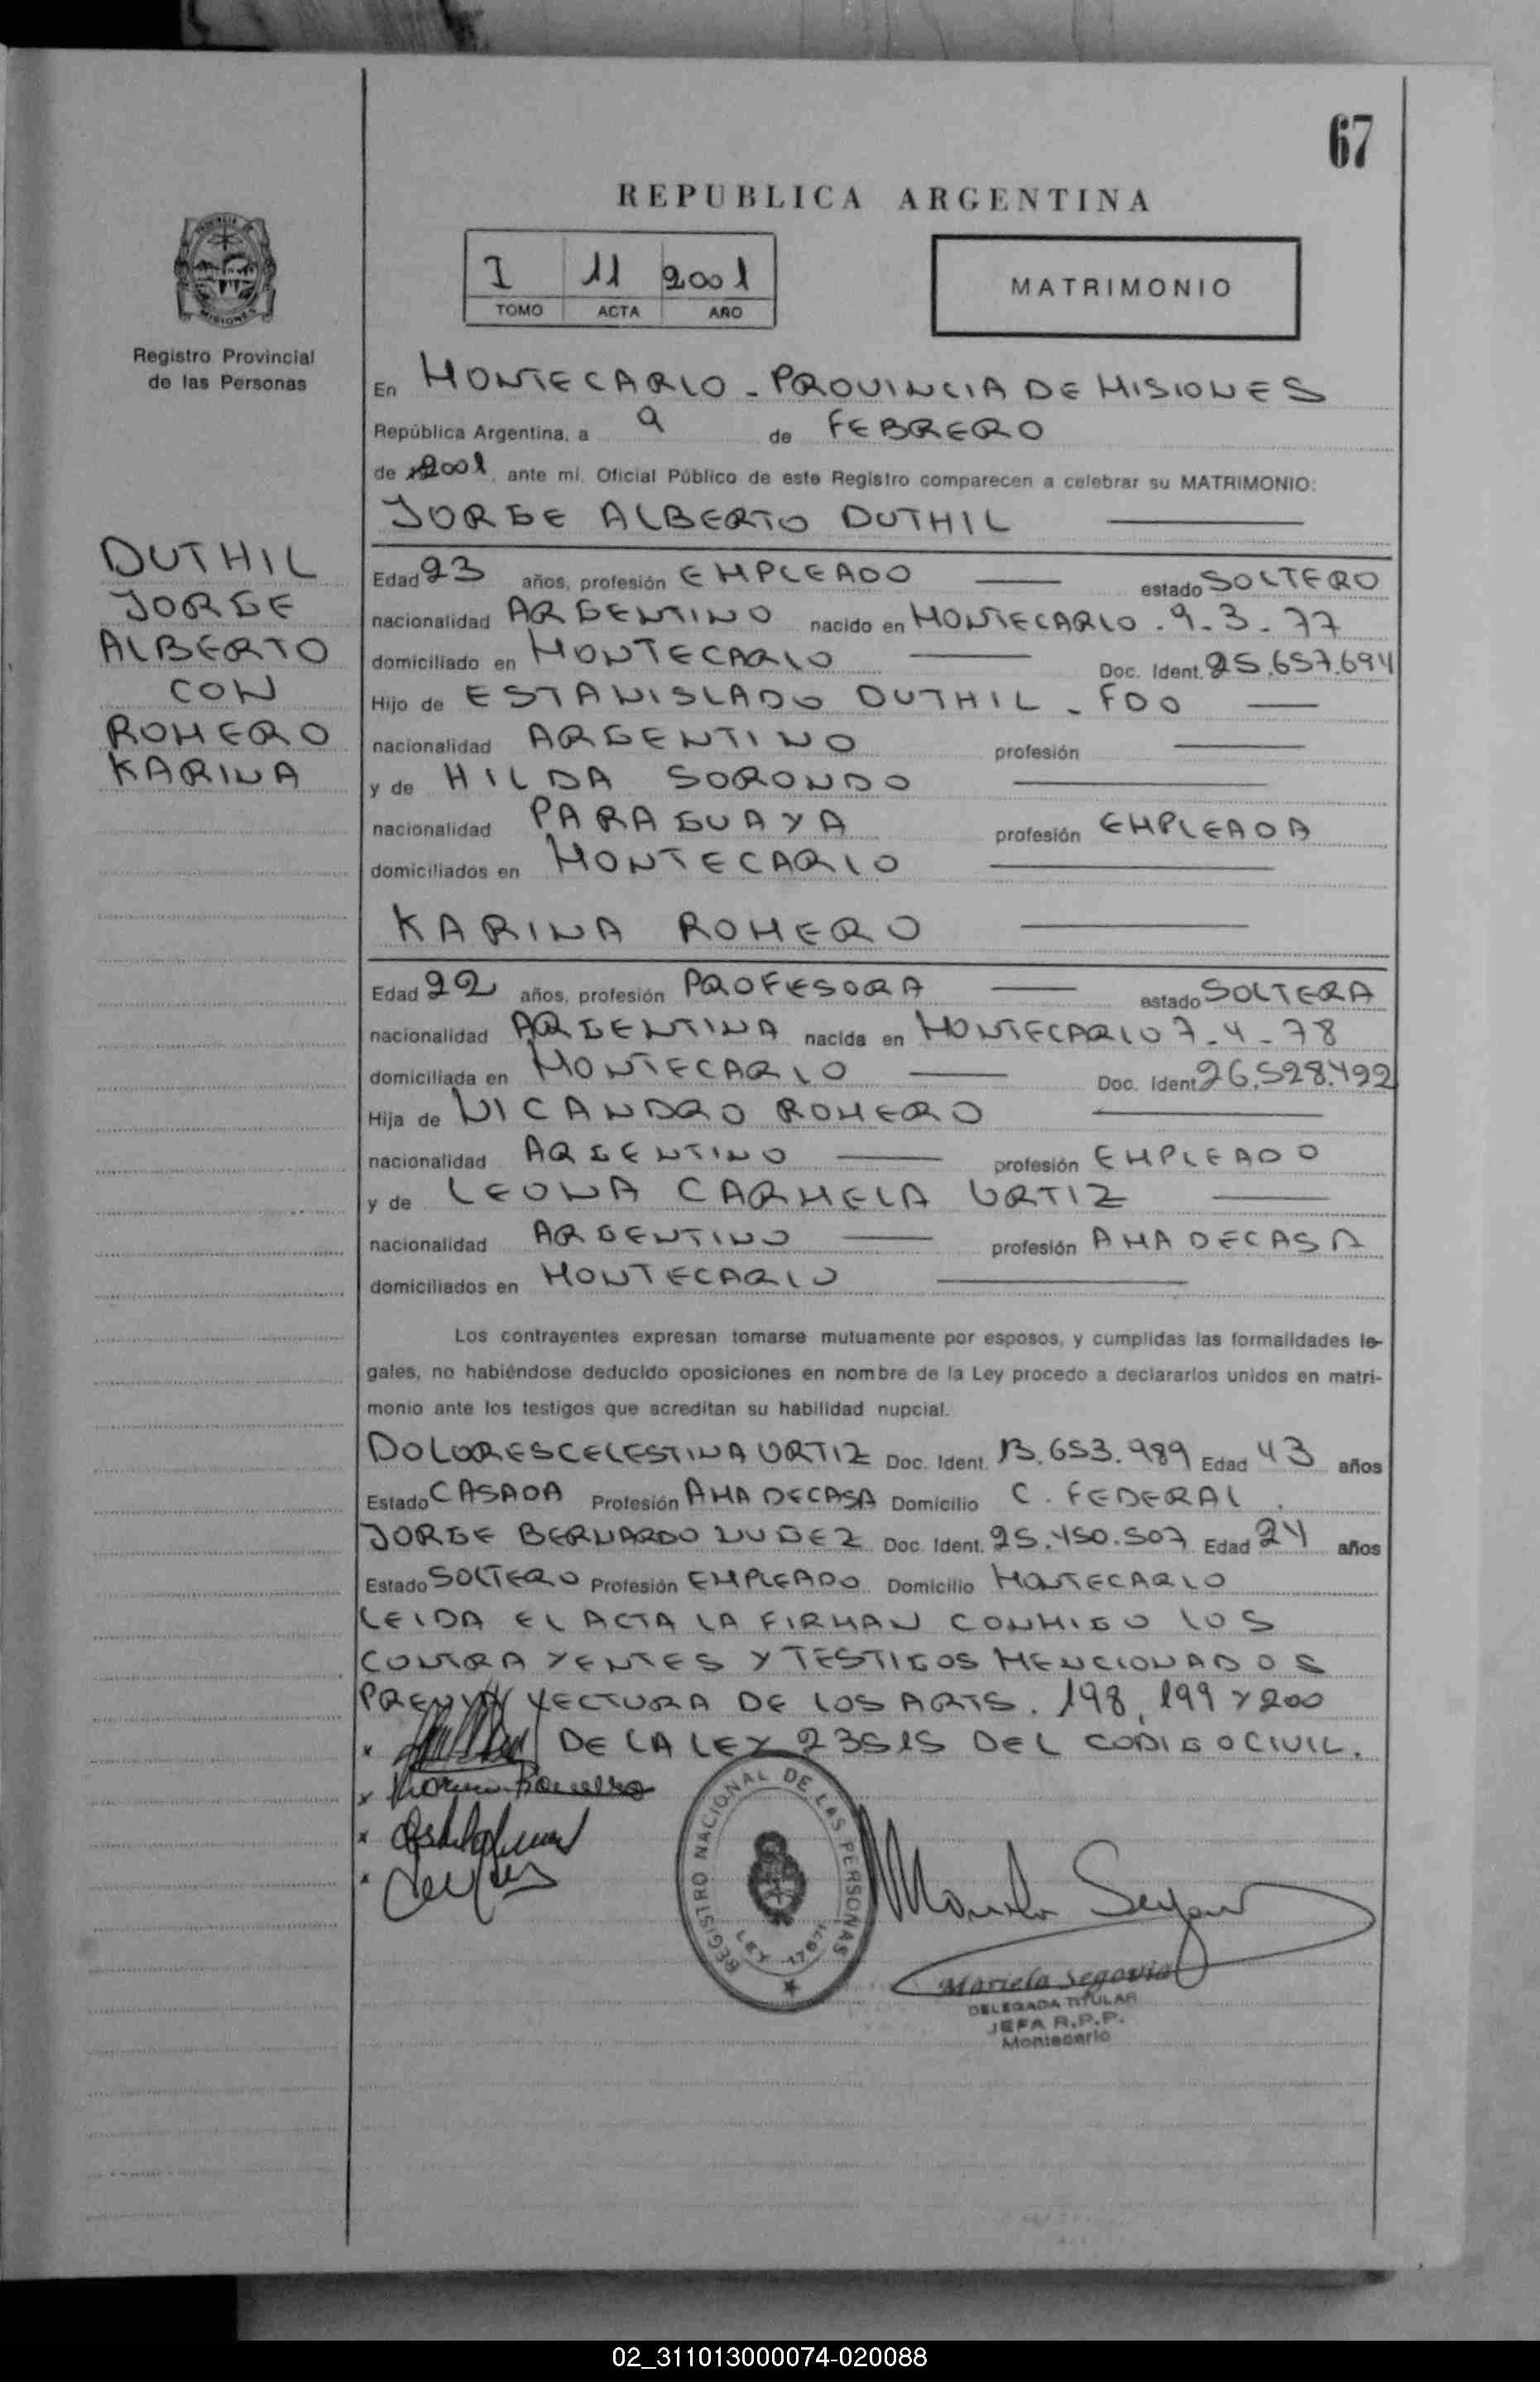 67
REPUBLICA ARGENTINA
I 11 2001
TOMO ACTA AÑO
MATRIMONIO
Registro Provincial
de las Personas
En MONTECARLO - PROVINCIA DE MISIONES
República Argentina, a 9 de FEBRERO
de 2001, ante mí, Oficial Público de este Registro comparecen a celebrar su MATRIMONIO:
JORGE ALBERTO DUTHIL
DUTHIL
JORGE
ALBERTO
CON
ROMERO
KARINA
Edad 23 años, profesión EMPLEADO estado SOLTERO
nacionalidad ARGENTINO nacido en MONTECARLO . 9-3-77
domiciliado en MONTECARLO Doc. Ident. 25.657.694
Hijo de ESTANISLADO DUTHIL - FDO
nacionalidad ARGENTINO profesión
y de HILDA SORONDO
nacionalidad PARAGUAYA profesión EMPLEADA
domiciliados en MONTECARLO
KARINA ROMERO
Edad 22 años, profesión PROFESORA estado SOLTERA
nacionalidad ARGENTINA nacida en MONTECARLO 7-4-78
domiciliada en MONTECARLO Doc. Ident 26.528.492
Hija de NICANDRO ROMERO
nacionalidad ARGENTINO profesión EMPLEADO
y de LEONA CARMELA ORTIZ
nacionalidad ARGENTINO profesión AMA DE CASA
domiciliados en MONTECARLO
Los contrayentes expresan tomarse mutuamente por esposos, y cumplidas las formalidades le-
gales, no habiéndose deducido oposiciones en nombre de la Ley procedo a declararlos unidos en matri-
monio ante los testigos que acreditan su habilidad nupcial.
DOLORES CELESTINA ORTIZ Doc. Ident. 13.653.989 Edad 43 años
Estado CASADA Profesión AMA DE CASA Domicilio C. FEDERAL .
JORGE BERNARDO NUÑEZ Doc. Ident. 25.450.507 Edad 24 años
Estado SOLTERO Profesión EMPLEADO Domicilio MONTECARLO
LEIDA EL ACTA LA FIRMAN CONMIGO LOS
CONTRAYENTES Y TESTIGOS MENCIONADOS
PREVIA LECTURA DE LOS ARTS. 198, 199 Y 200
DE LA LEY 23515 DEL CODIGO CIVIL.
Karina Romero
REGISTRO NACIONAL DE LAS PERSONAS
LEY 17671
Mariela Segovia
DELEGADA TITULAR
JEFA R.P.P.
Montecarlo
02_311013000074-020088